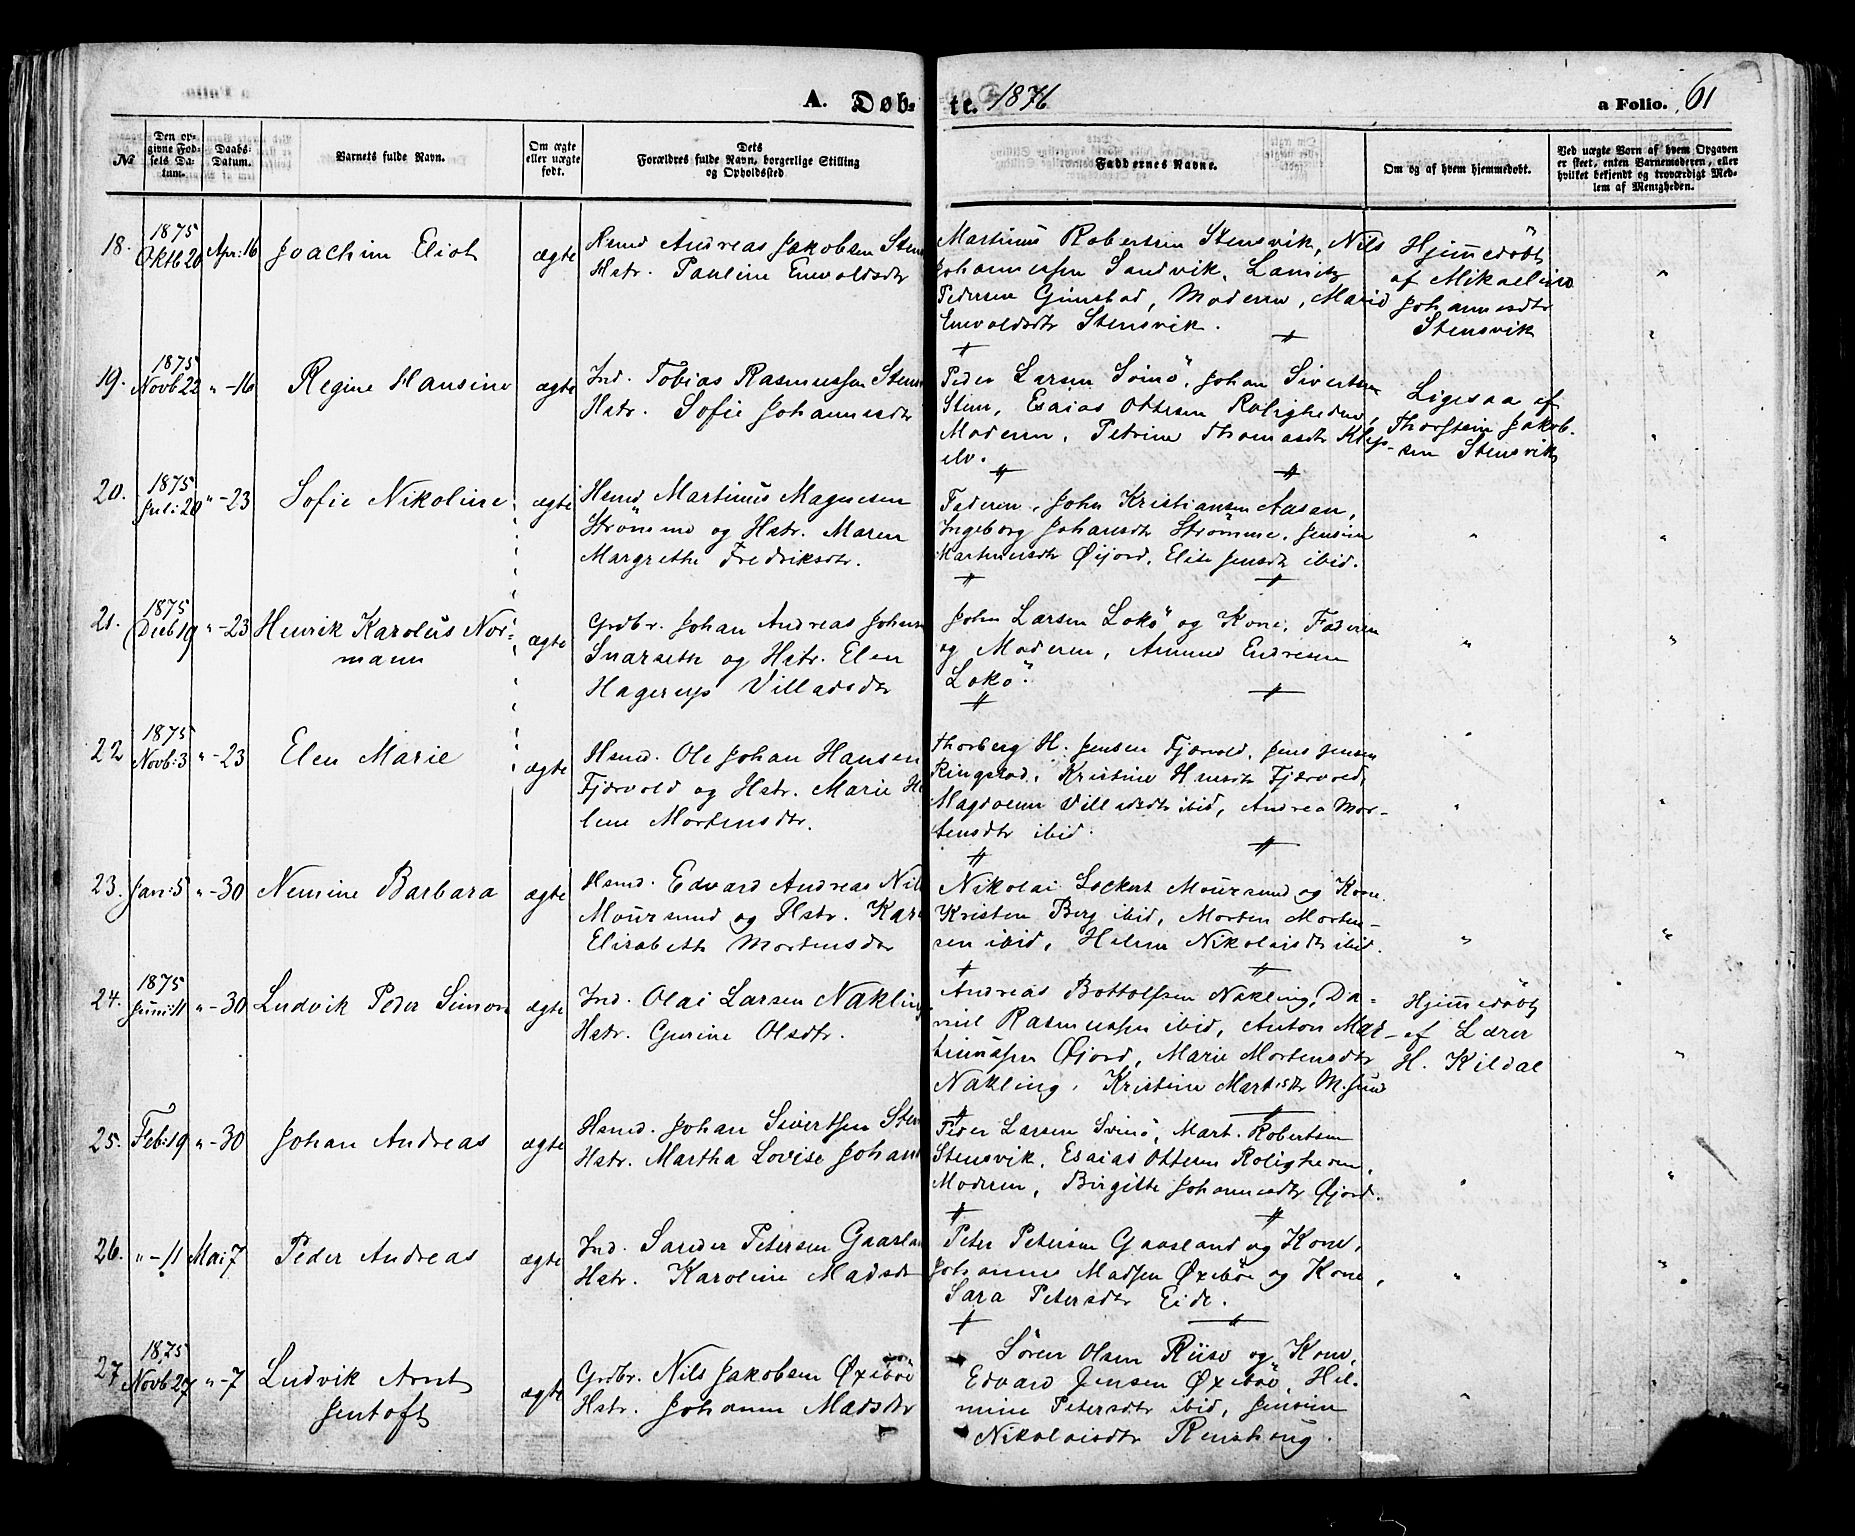 A. Døb-
te. 1876
a Folio. 61
№
Den op-
givne Fød-
sels Da-
tum.
Daabs-
Datum.
Barnets fulde Navn.
Om ægte
eller uægte
født.
Dets
Forældres fulde Navn, borgerlige Stilling
og Opholdssted
Faddernes Navne.
Om og af hvem hjemmedøbt.
Ved uægte Børn af hvem Opgaven
er skeet, enten Barnemoderen, eller
hvilket bekjendt og troværdigt Med-
lem af Menigheden.
18.
1875
Oktb 20
Apr: 16
Joachim Eliot
ægte
Hsmd Andreas Jakobsen
Hstr. Pauline Envoldsdtr
Martinus Robertsen Stensvik, Nils
Johannessen Sandvik,
Pedersen Gimstad, Moderen, Marie
Envoldsdtr Stensvik.
Hjemmedøbt
af Mikaeline
Johannesdtr
Stensvik
19.
1875
Novb 22
" -16
Regine Hansine
ægte
Ind. Tobias Rasmussen
Hstr. Sofie Johannesdtr
Peder Larsen Svinø, Johan Sivertsen
Sten, Esaias Ottesen Roligheden,
Moderen, Petrine Thomasdtr Klep-
elv.
Ligesaa af
Thorstein Jakob-
sen Stensvik
20.
1875
Juli: 20
" -23
Sofie Nikoline
ægte
Hsmd Martinus Magnesen
Strømme og Hstr. Maren
Margrethe Fredriksdtr.
Faderen, John Kristiansen Aasan,
Ingeborg Johansdtr Strømme, Jensine
Martinusdtr Øijord, Elise Jensdtr ibid.
21.
1875
Decb 19
" -23
Henrik Karolus Nor-
mann
ægte
Grdbr. Johan Andreas Johns
Snarseth og Hstr. Elen
Hagerup Villadsdtr
John Larsen Lokø og Kone, Faderen
og Moderen, Amund Endresen
Lokø.
22
1875
Novb: 3
" -23
Elen Marie
ægte
Hsmd. Ole Johan Hansen
Fjærvold og Hstr. Marie He
lene Mortensdtr.
Thorberg H. Jensen Fjærvold, Jens Jensen
Ringstad, Kristine Hansdtr Fjærvold,
Magdalena Villadsdtr ibid, Andrea Mor-
tensdtr ibid.
23.
Jan: 5
" -30
Nemine Barbara
ægte
Hsmd. Edvard Andreas Nil
Moursund og Hstr. Kare
Elisabeth Mortensdtr
Nikolai Lockert Moursund og Kone
Kristen Berg ibid, Morten Morten-
sen ibid, Helene Nikolaisdtr ibid.
24.
1875
Juni: 11
" -30
Ludvik Peder Simon
ægte
Ind. Olai Larsen Nakling
Hstr. Gurine Olsdtr.
Andreas Bottolfsen Nakling, Da-
niel Rasmussen ibid, Anton Mar-
tinussen Øijord, Marie Mortensdtr
Nakling, Kristine Martisdtr M.sund
Hjemmedøbt
af Lærer
H. Kildal
25.
Feb: 19
" -30
Johan Andreas
ægte
Hsmd. Johan Sivertsen Sten
Hstr. Martha Lovise Johan
Peder Larsen Svinø, Mart. Robertsen
Stensvik, Esaias Ottesen Roligheden,
Moderen, Birgitte Johannesdtr Øijord.
26.
" -11
Mai 7
Peder Andreas
ægte
Ind. Sander Petersen Gaaslan
Hstr. Karoline Madsdtr
Peter Petersen Gaasland og Kone,
Johannes Madsen Øxebøe og Kone,
Sara Petersdtr Eide.
27
1875
Novb 27
" -7
Ludvik Arnt
Jentoft
ægte
Grdbr. Nils Jakobsen Øxebøe
Hstr. Johanna Madsdtr
Søren Olsen Riise og Kone,
Edvard Jensen Øxebøe, Hel-
mine Petersdtr ibid, Jensine
Nikolaisdtr